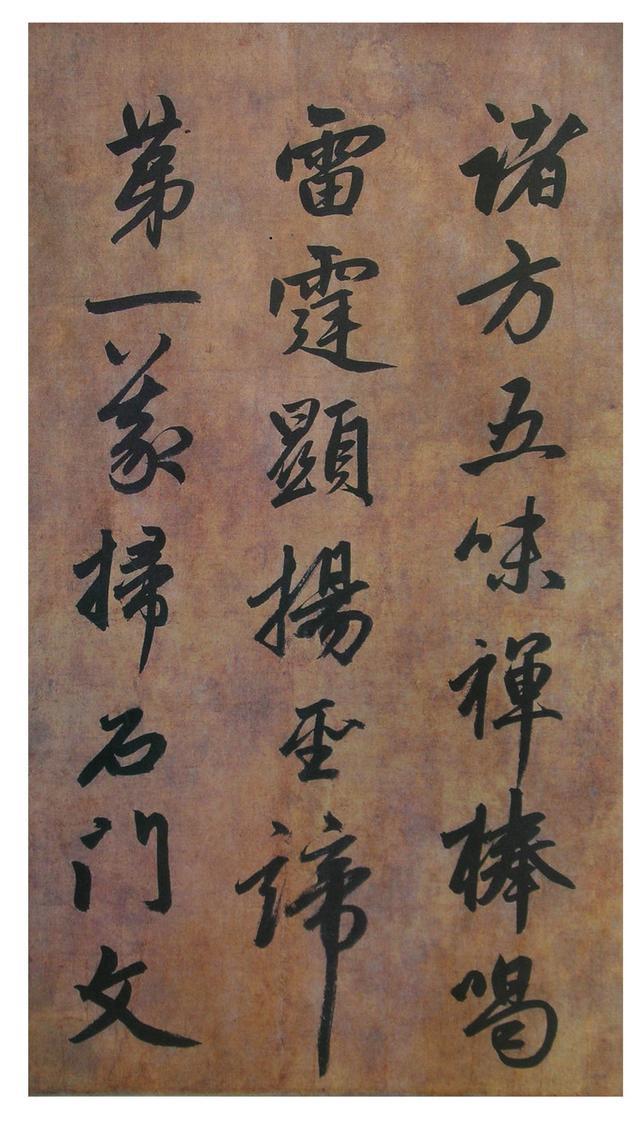 诸方五味禅棒喝
雷霆顯揚聖諦
苐一義掃石门文